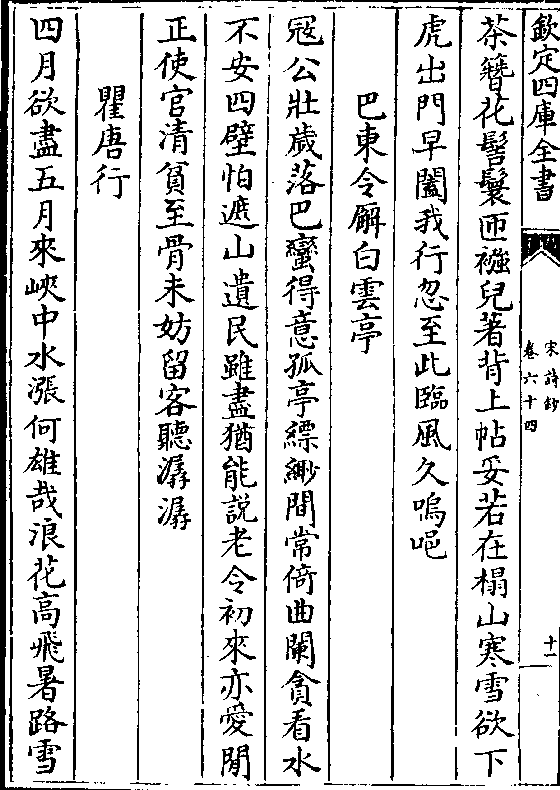 欽定四庫全書
宋詩鈔
卷六十四
十一
茶簪花髻鬟匝襁兒著背上帖妥若在榻山寒雪欲下
虎出門早闔我行忽至此臨風久嗚唈
巴東令廨白雲亭
冦公壯歲落巴蠻得意孤亭縹緲間常倚曲闌貪看水
不安四壁怕遮山遺民雖盡猶能説老令初來亦愛閒
正使官清貧至骨未妨留客聽潺潺
瞿唐行
四月欲盡五月來峽中水漲何雄哉浪花高飛暑路雪